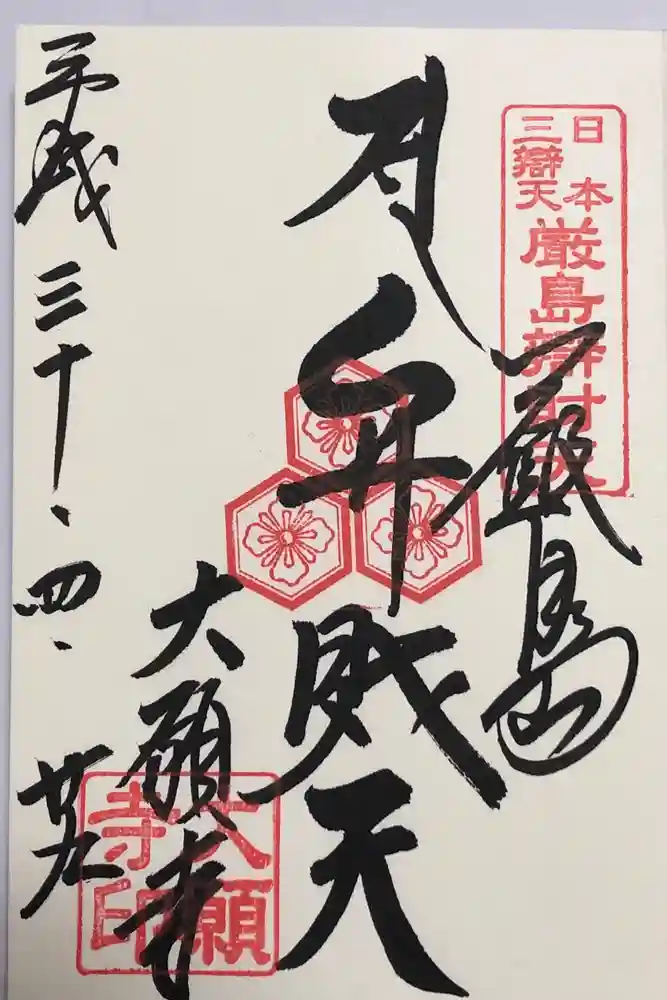 日本
三辯天
厳島辯財天
厳島
弁財天
大願寺
大願寺印
平成三十、四、廿九